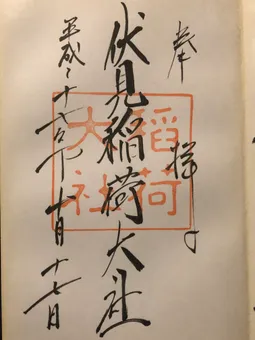 奉拝
伏見稲荷大社
稲荷
大社
平成二十年月十七日